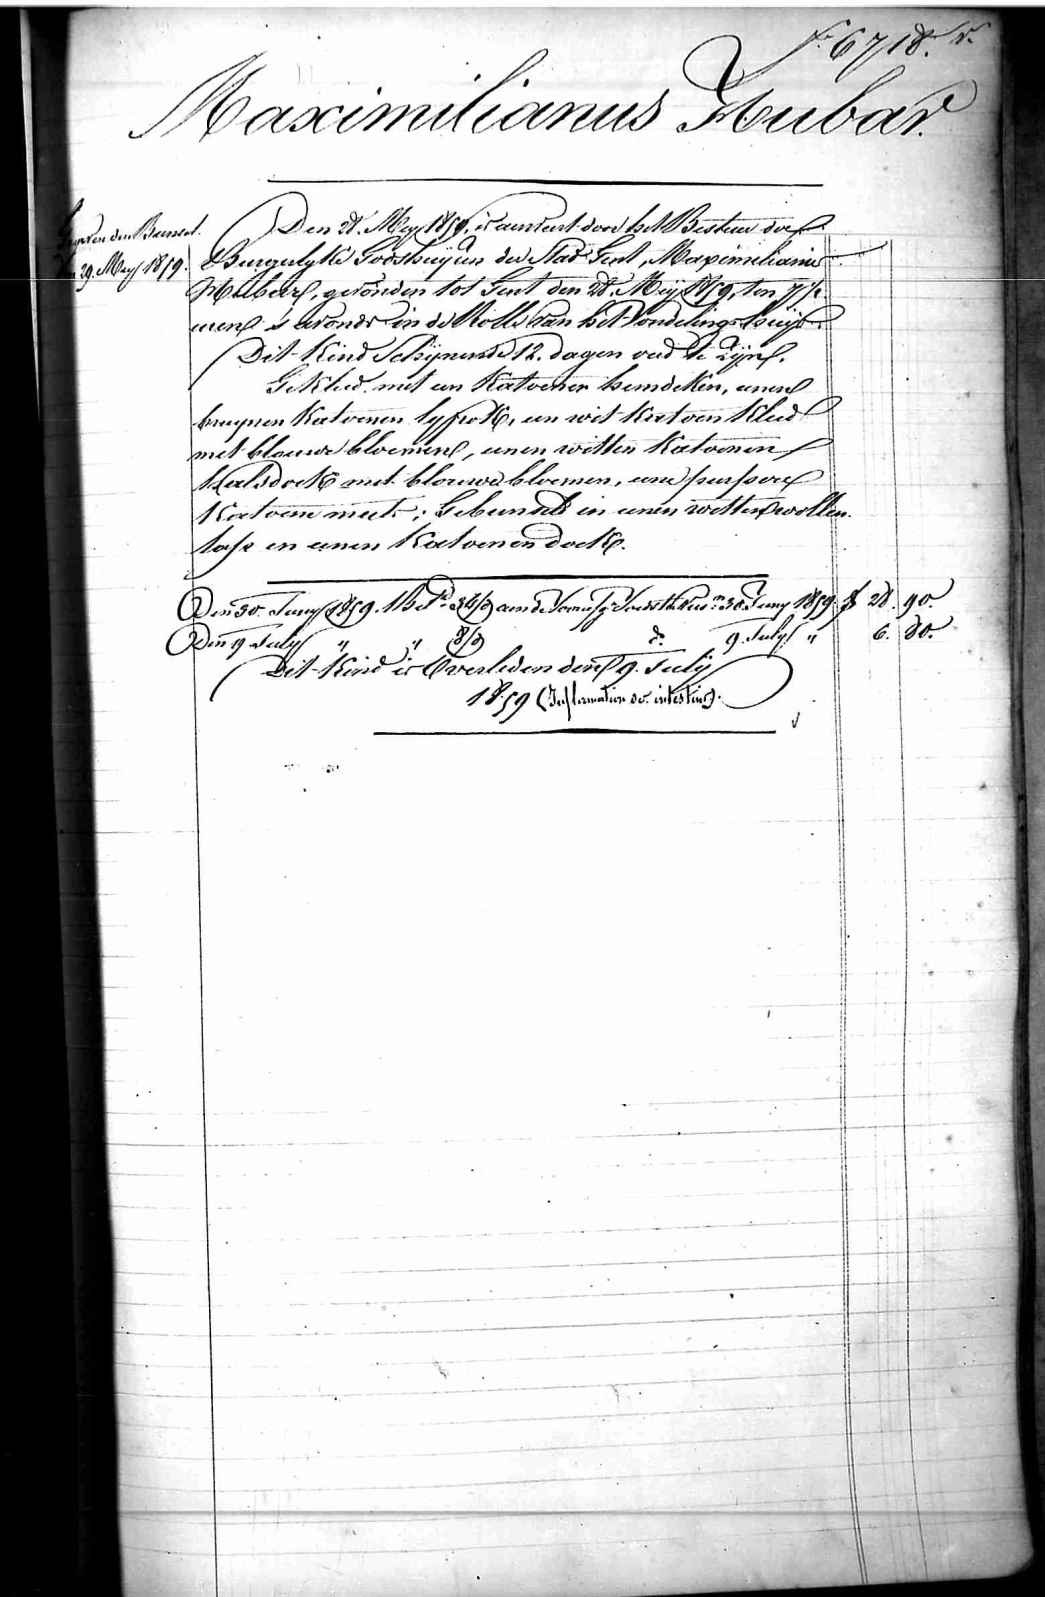 6718. v.
Maximilianus Hubar.
Den 28. Mey 1859, is aenveert door het Bestuer der
29. Mey 1859.
Burgerlyke Godshuyzen der Stad Gent, Maximilianus
Hubar, gevonden tot Gent den 28. Meij 1859, ten
uren 's avonds in de Rolle van het Vondelings-huijs.
Dit Kind Schijnende 12. dagen oud te zijn.
Gekleed met een Katoenen hemdeken, eenen
bruynen Katoenen lyfrok, een wit Katoen Kleed
met blauwe bloemen, eenen witten Katoenen
halsdoek met blauwe bloemen, eene purpere
Katoene muts; Gebunseld in eenen witten wollen
lap en eenen Katoenen doek.
Den 30. Juny 1859. aen de 30 Juny 1859. 28. 90.
Den 19 July " " d.o 9. July " 6. 80.
Dit Kind is Overleden den 9. July
1859 (Inflammation des intestins).